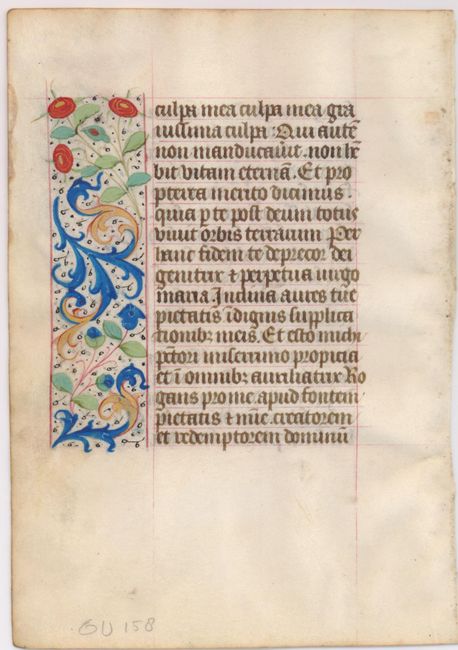 culpa mea culpa mea gra
uissima culpa : Qui autē
non manducauit . non hē
bit vitam eternā . Et pro
pterea merito dicimus
quia p te post deum totus
viuit orbis terrarum Per
hanc fidem te deprecor dei
genitrix & perpetua uirgo
maria Inclina aures tue
pietatis īdignis supplica
tionibꝫ meis . Et esto michi
pctori miserrimo propicia
et ī omnibꝫ auxiliatrix Ro
gans pro me apud fontem
pietatis & mīe . creatorem
et redemptorem dominū
GU 158